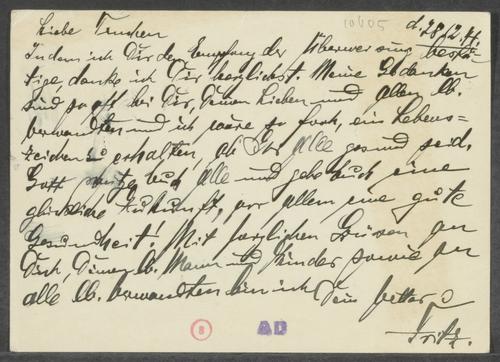 10605
d. 28.12.44.
Liebe Truchen
Indem ich Dir den Empfang der Überweisung bestä-
tige, danke ich Dir herzlichst. Meine Gedanken
sind so oft bei Dir, Deinen Lieben und allen lb.
Verwandten und ich wäre so froh, ein Lebens=
zeichen zu erhalten, ob Ihr alle gesund seid.
Gott schütze Euch alle und gebe Euch eine
glückliche Zukunft, vor allem eine gute
Gesundheit! Mit herzlichen Grüssen an
Dich, Deinen lb. Mann und Kinder sowie an
alle lb. Verwandten bin ich Dein Vetter
Fritz.
8 AD